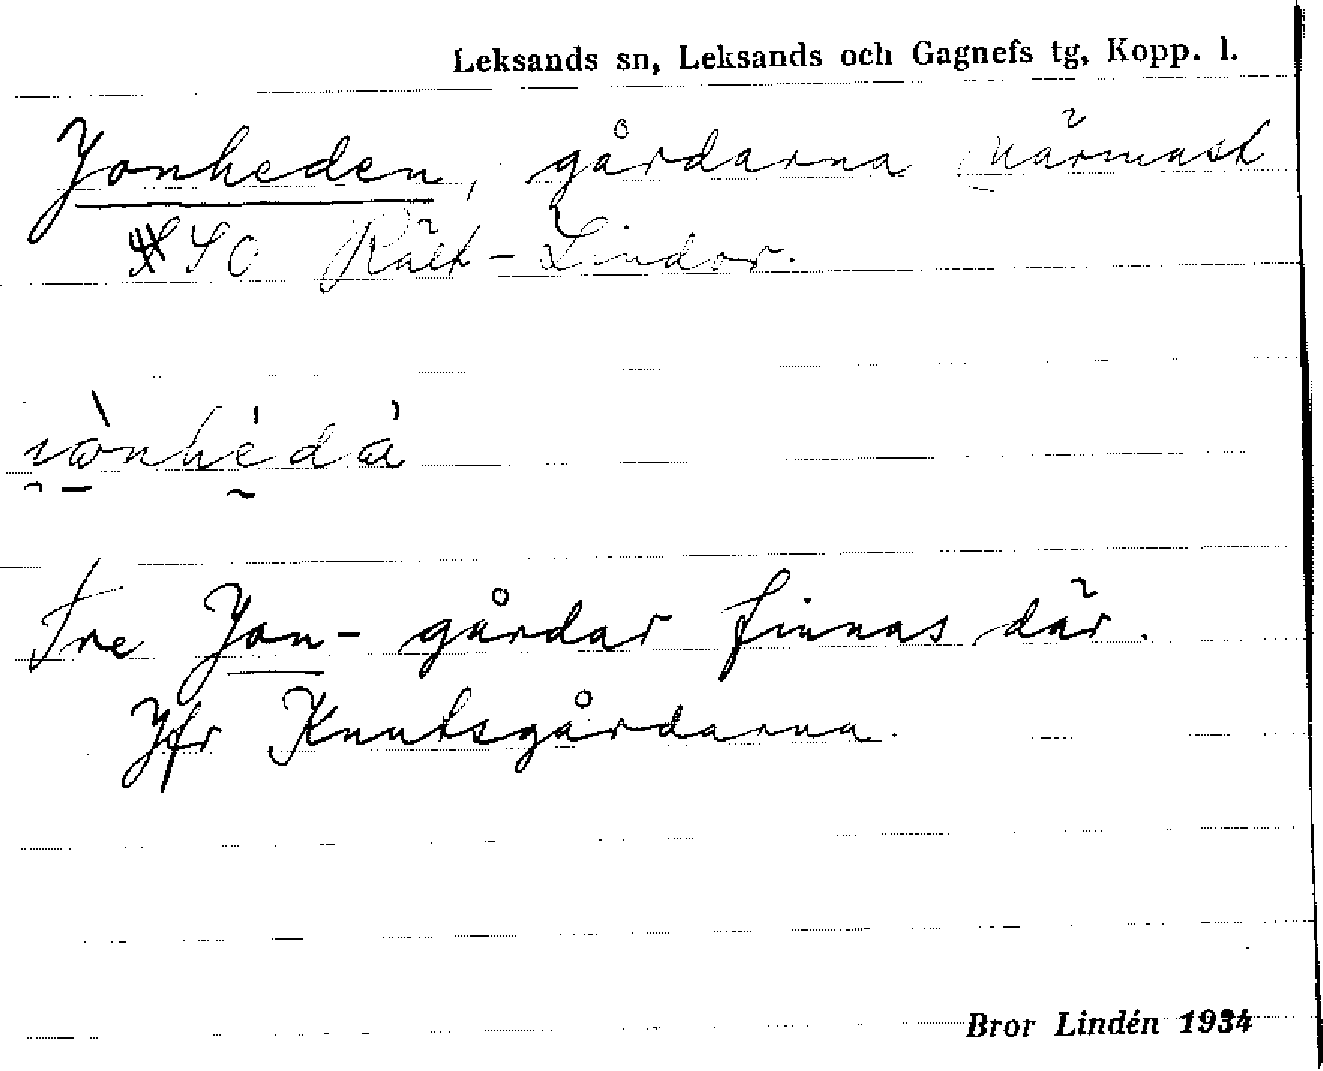 Leksands sn, Leksands och Gagnefs tg, Kopp. l.
Jonheden, gårdarna närmast
SO Rält-Lindor.
Tre Jon- gårdar finnas där.
Jfr Knutsgårdarna.
Bror Lindén 1934